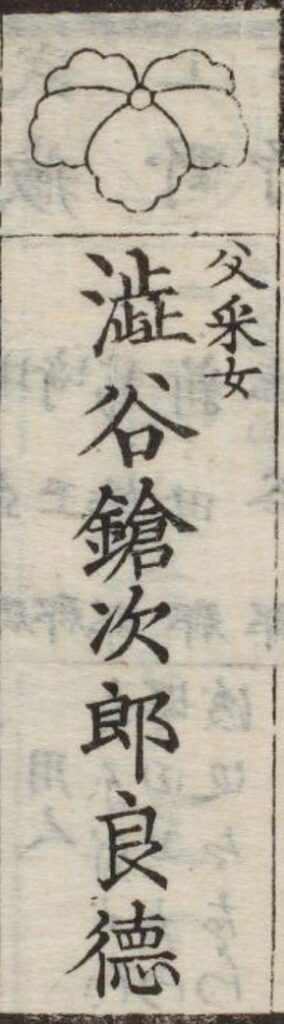 父采女
澁谷鎗次郎良德